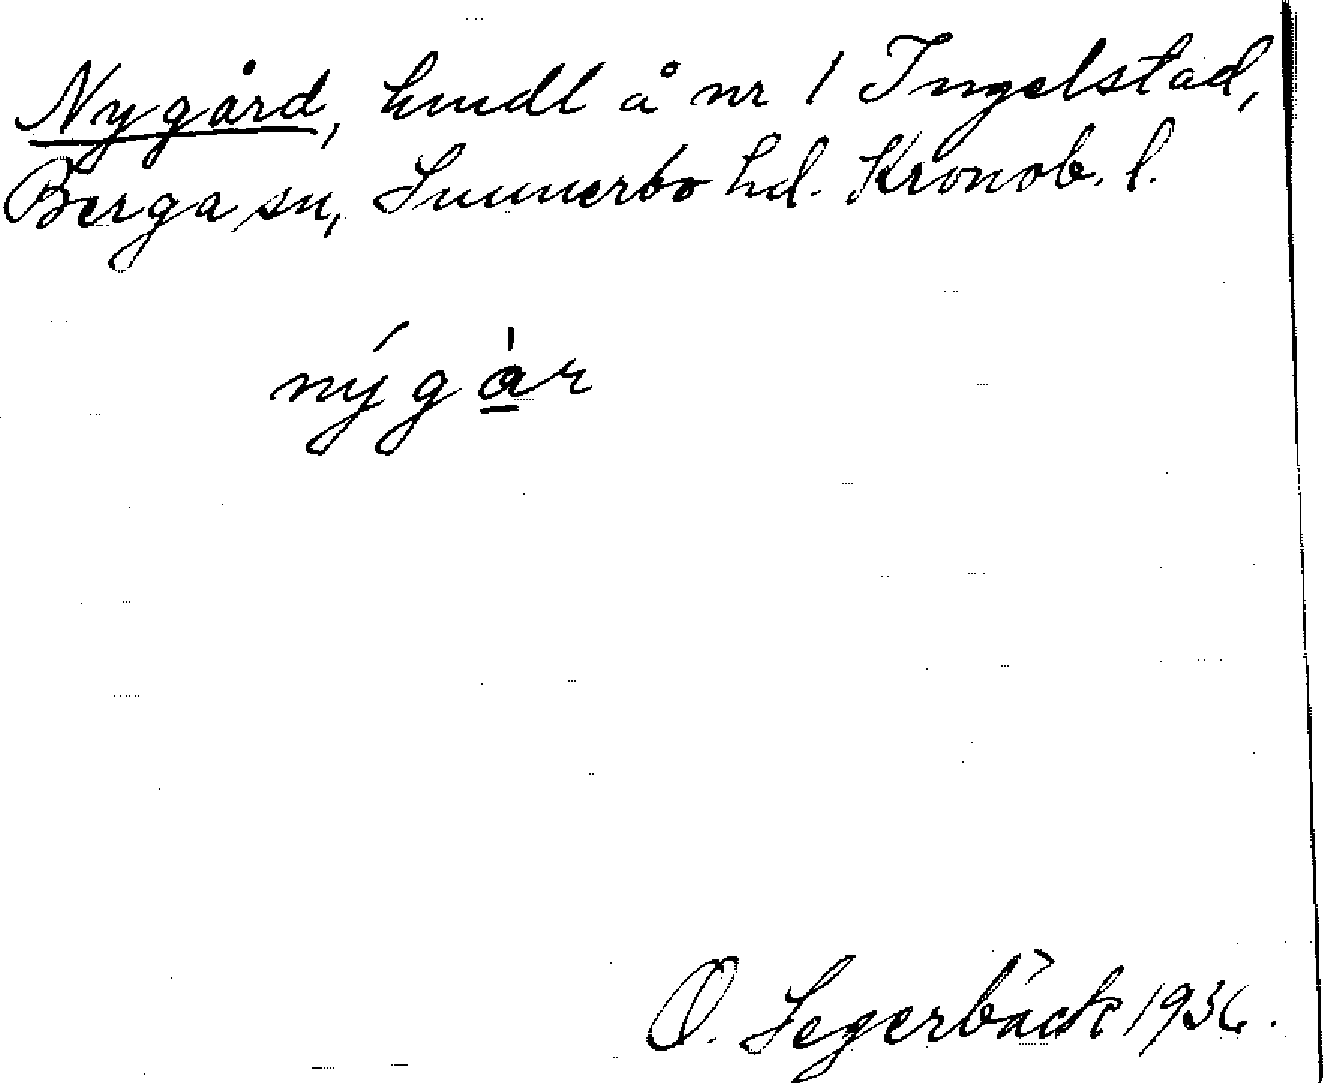 Nygård, hmdl å nr 1 Ingelstad,
Berga sn, Sunnerbo hd. Kronob. l.
nýgàr
O. Segerbäck 1936.